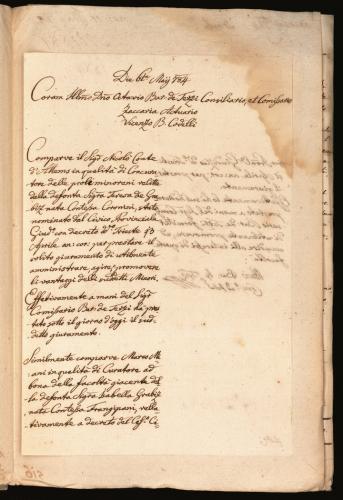 Die 6t. Maij 1814
Coram Illmo Dno Octavio Bar. de Terzi Consiliario, et Comissario
Zaccaria Actuario
Vicenzo B. Codelli
Comparve il Sigr Nicolò Conte
d'Attems in qualità di Concura-
tore delle prole minorani relitte
dalla defonta Sigra Teresa de Gra-
biz nata Contessa Coronini,
nominato dal Civico Provinciale
Giud. con decreto do Trieste
Aprile an: cor: per prestare il
solito giuramento di utilmente
amministrare, agire, promovere
li vantaggi delli sudetti Minori.
Effetivamente a mani del Sigr
Comissario Bar. de Terzi ha pres-
tato sotto il giorno d'oggi il sud-
detto giuramento.
Similmente comparve Marco M
ani in qualità di Curatore ad
bona della facoltà giacente del-
la defonta Sigra Isabella Grabiz
nata Contessa Frangipani, rella-
tivamente a decreto del Ces. Ci-